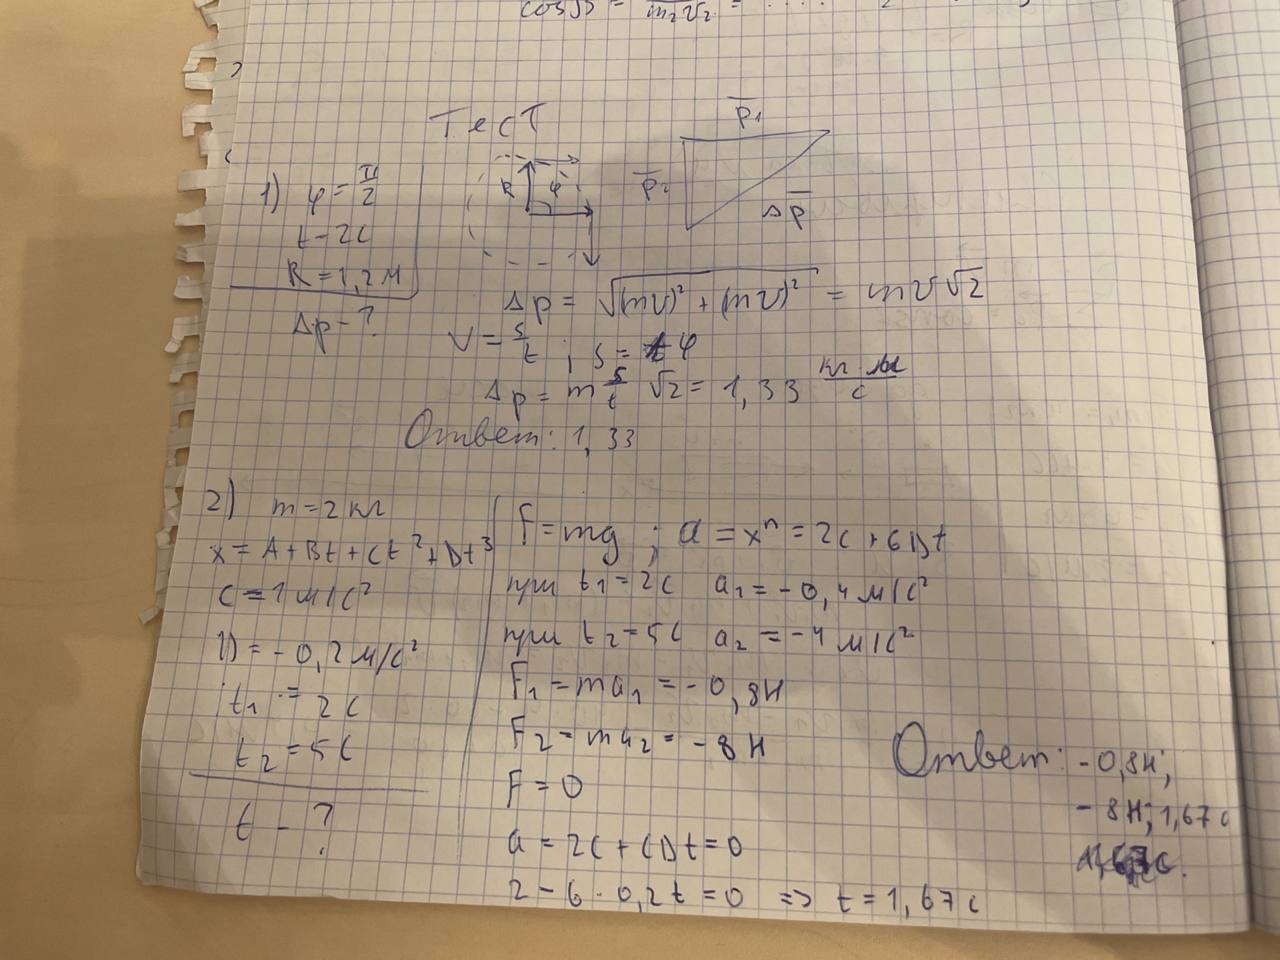 cosβ = / m₂v₂ = ....
Тест
1) φ = π/2
t - 2с
R = 1,2 м
Δp - ?
R φ
p̅₁
p̅₂
Δp̅
Δp = √(mv)² + (mv)² = mv√2
v = s/t ; s = φ
Δp = m s/t √2 = 1,33 кг м/с
Ответ: 1,33
2) m = 2 кг
x = A + Bt + Ct² + Dt³
C = 1 м/с²
D = - 0,2 м/с²
t₁ = 2с
t₂ = 5с
t - ?
F = mg ; a = xⁿ = 2C + 6Dt
при t₁ = 2с a₁ = - 0,4 м/с²
при t₂ = 5с a₂ = - 4 м/с²
F₁ = ma₁ = - 0,8Н
F₂ = ma₂ = - 8 Н
F = 0
a = 2C + CDt = 0
2 - 6 · 0,2t = 0 => t = 1,67с
Ответ: - 0,8Н;
- 8Н; 1,67с